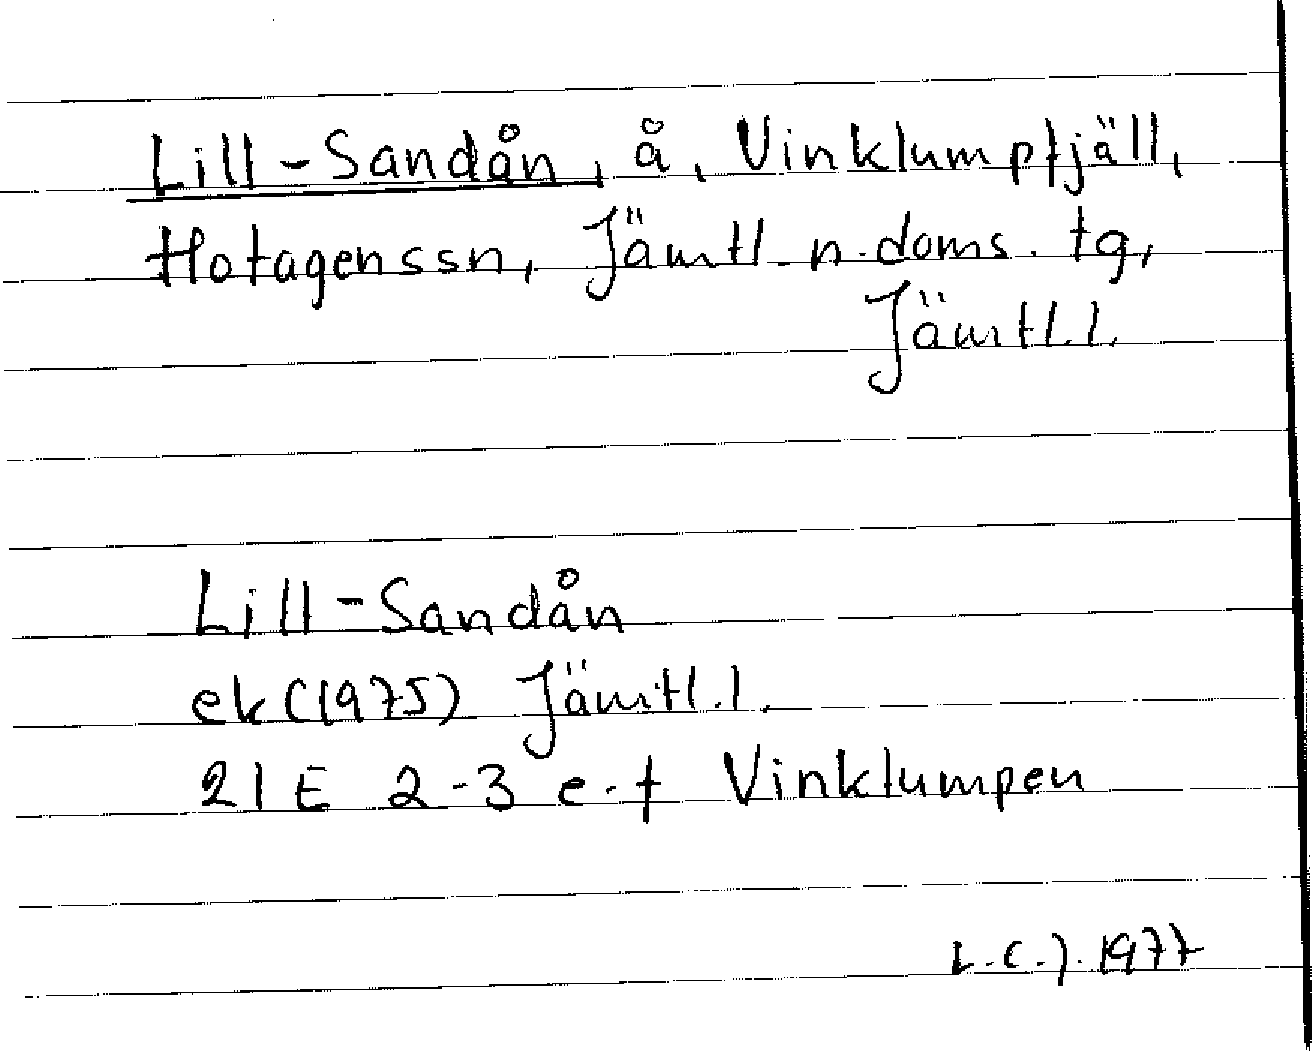 Lill-Sandån, å, Vinklumpfjäll,
Hotagenssn, Jämtl. n. doms. tg,
Jämtl.l.
Lill-Sandån
ek (1975) Jämtl.l.
21E 2-3 e-f Vinklumpen
L.C.J. 1977